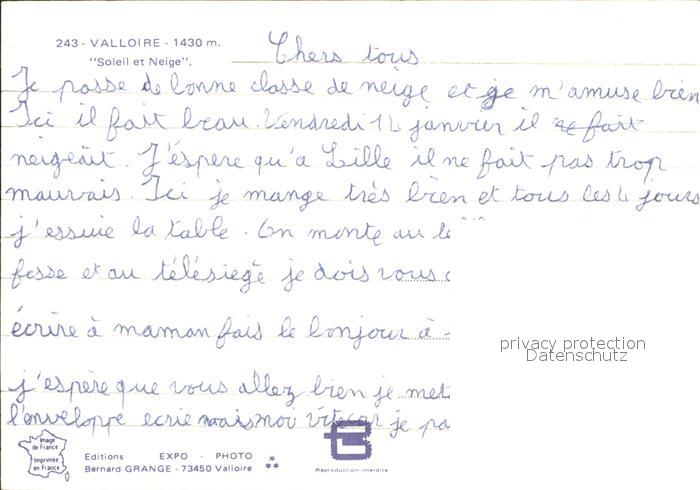 243 - VALLOIRE - 1430 m.
"Soleil et Neige".
Chers tous
Je passe de bonne classe de neige et je m'amuse bien
Ici il fait beau. Vendredi 12 janvier il fait
neigeait. J'éspère qu'a Lille il ne fait pas trop
mauvais. Ici je mange très bien et tous les 4 jours
j'essuie la table. On monte au
fesse et au télésiege je dois vous
écrire à maman fais le bonjour à
j'espère que vous allez bien je met
l'enveloppe ecrie mais moi vite car je pa
privacy protection
Datenschutz
Image
de France
Imprimée
en France
Editions EXPO - PHOTO
Bernard GRANGE - 73450 Valloire
Reproduction interdite